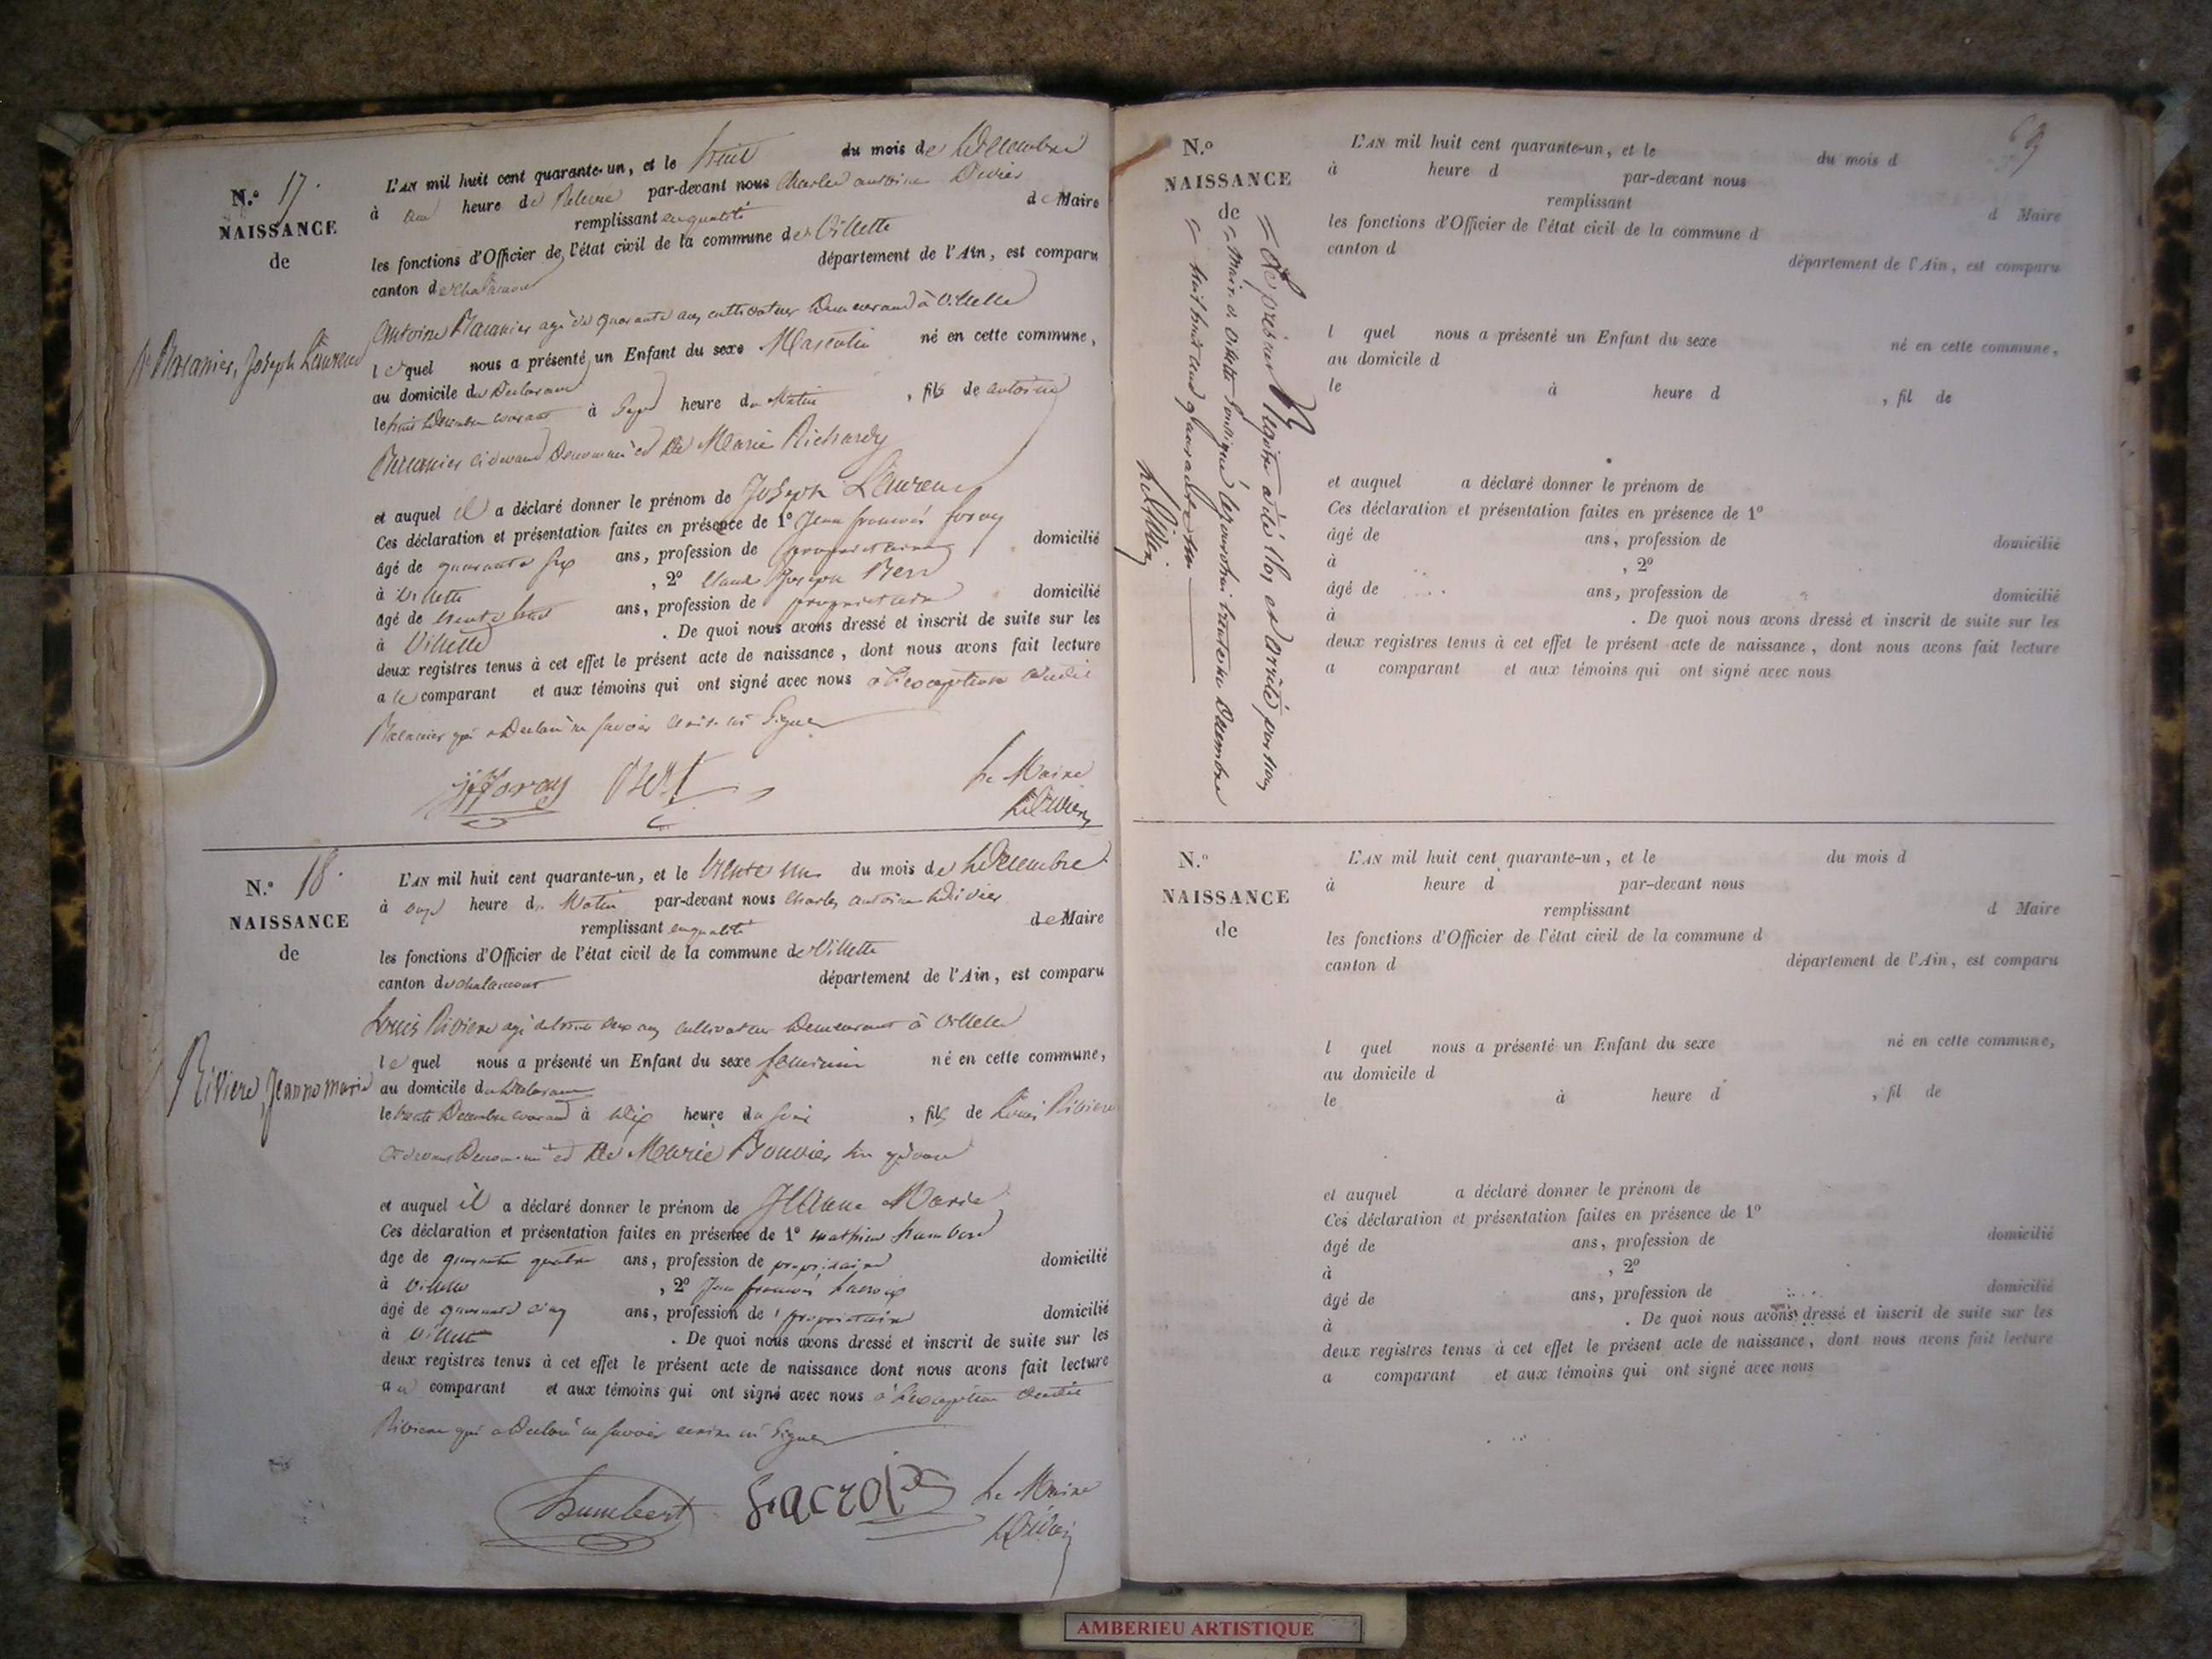 N.° 17.
NAISSANCE
de
Joseph Laurent
L'AN mil huit cent quarante-un, et le huit du mois de Décembre
à heure de par-devant nous Charles antoine Divier
remplissant en qualité de Maire
les fonctions d'Officier de l'état civil de la commune de Villette
canton de chalamont département de l'Ain, est comparu
Antoine agé de quarante ans cultivateur Demeurant à Villette
lequel nous a présenté un Enfant du sexe Masculin né en cette commune,
au domicile du Declarant
le huit Decembre courant à heure du Matin , fils de antoine
ci devant Denommé et De Marie Richardy
et auquel il a déclaré donner le prénom de Joseph Laurent
Ces déclaration et présentation faites en présence de 1° Jean francois foray
âgé de quarante six ans, profession de propriétaire domicilié
à Villette , 2° Claude Joseph
âgé de trente huit ans, profession de propriétaire domicilié
à Villette . De quoi nous avons dressé et inscrit de suite sur les
deux registres tenus à cet effet le présent acte de naissance, dont nous avons fait lecture
a le comparant et aux témoins qui ont signé avec nous à l'exception dudit
qui a Declaré ne savoir ecrire ni signer
Le Maire
Divier
N.° 18.
NAISSANCE
de
Riviere, Jeanne marie
L'AN mil huit cent quarante-un, et le trente un du mois de Decembre
à onze heure du Matin par-devant nous Charles antoine Divier
remplissant en qualité de Maire
les fonctions d'Officier de l'état civil de la commune de Villette
canton de chalamont département de l'Ain, est comparu
Louis Riviere agé de trente deux ans cultivateur Demeurant à Villette
lequel nous a présenté un Enfant du sexe feminin né en cette commune,
au domicile du Declarant
le trente Decembre courant à Dix heure du soir , fils de Louis Riviere
ci devant Denommé et De Marie Bouvier
et auquel il a déclaré donner le prénom de Jeanne Marie
Ces déclaration et présentation faites en présence de 1° mathieu humbert
âge de quarante quatre ans, profession de propriétaire domicilié
à Villette , 2° Jean francois Lacroix
âgé de quarante cinq ans, profession de propriétaire domicilié
à Villette . De quoi nous avons dressé et inscrit de suite sur les
deux registres tenus à cet effet le présent acte de naissance dont nous avons fait lecture
a u comparant et aux témoins qui ont signé avec nous à l'exception dudit
Riviere qui a Declaré ne savoir ecrire ni signer
humbert Lacroix Le Maire
Divier
69
N.°
NAISSANCE
de
L'AN mil huit cent quarante-un, et le du mois d
à heure d par-devant nous
remplissant d Maire
les fonctions d'Officier de l'état civil de la commune d
canton d département de l'Ain, est comparu
l quel nous a présenté un Enfant du sexe né en cette commune,
au domicile d
le à heure d , fil de
et auquel a déclaré donner le prénom de
Ces déclaration et présentation faites en présence de 1°
âgé de ans, profession de domicilié
à , 2°
âgé de ans, profession de domicilié
à . De quoi nous avons dressé et inscrit de suite sur les
deux registres tenus à cet effet le présent acte de naissance, dont nous avons fait lecture
a comparant et aux témoins qui ont signé avec nous
Le présent Registre a été Clos et arrêté par nous
Maire de Villette soussigné le jourdhui trente un Decembre
huit cent quarante un
Divier
N.°
NAISSANCE
de
L'AN mil huit cent quarante-un, et le du mois d
à heure d par-devant nous
remplissant d Maire
les fonctions d'Officier de l'état civil de la commune d
canton d département de l'Ain, est comparu
l quel nous a présenté un Enfant du sexe né en cette commune,
au domicile d
le à heure d , fil de
et auquel a déclaré donner le prénom de
Ces déclaration et présentation faites en présence de 1°
âgé de ans, profession de domicilié
à , 2°
âgé de ans, profession de domicilié
à . De quoi nous avons dressé et inscrit de suite sur les
deux registres tenus à cet effet le présent acte de naissance, dont nous avons fait lecture
a comparant et aux témoins qui ont signé avec nous
AMBERIEU ARTISTIQUE